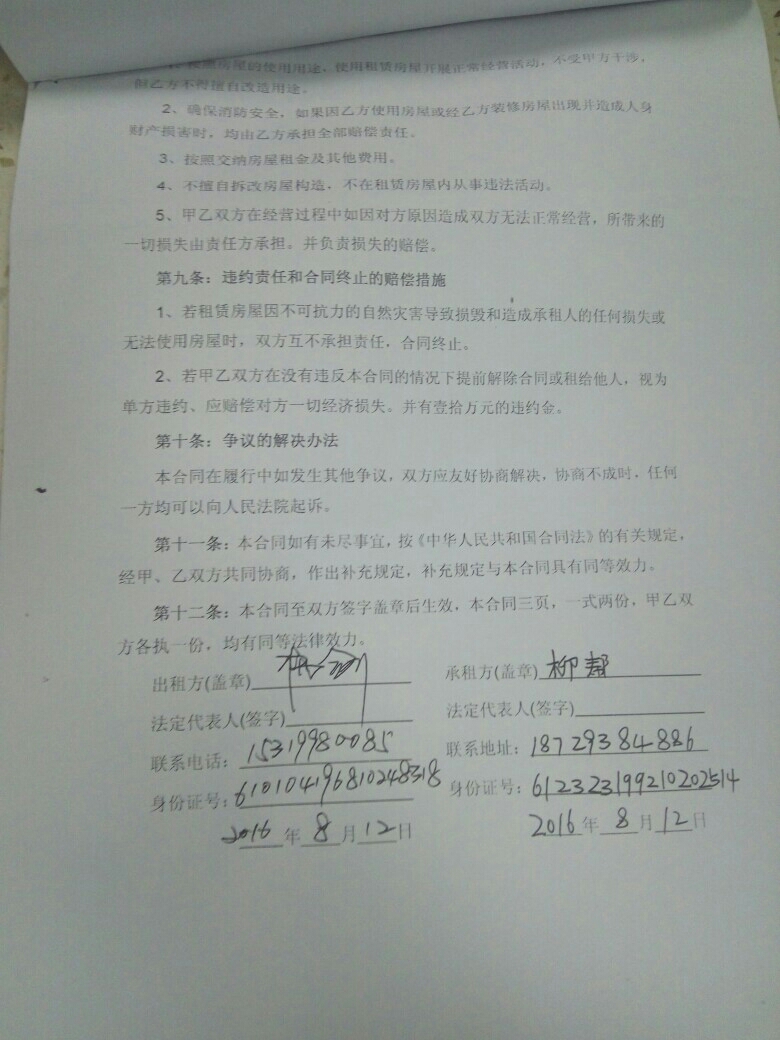 房屋的使用用途，使用租赁房屋开展正常经营活动，不受甲方干涉，
但乙方不得擅自改造用途。
2、确保消防安全，如果因乙方使用房屋或经乙方装修房屋出现并造成人身
财产损害时，均由乙方承担全部赔偿责任。
3、按照交纳房屋租金及其他费用。
4、不擅自拆改房屋构造，不在租赁房屋内从事违法活动。
5、甲乙双方在经营过程中如因对方原因造成双方无法正常经营，所带来的
一切损失由责任方承担。并负责损失的赔偿。
第九条：违约责任和合同终止的赔偿措施
1、若租赁房屋因不可抗力的自然灾害导致损毁和造成承租人的任何损失或
无法使用房屋时，双方互不承担责任，合同终止。
2、若甲乙双方在没有违反本合同的情况下提前解除合同或租给他人，视为
单方违约、应赔偿对方一切经济损失。并有壹拾万元的违约金。
第十条：争议的解决办法
本合同在履行中如发生其他争议，双方应友好协商解决，协商不成时，任何
一方均可以向人民法院起诉。
第十一条：本合同如有未尽事宜，按《中华人民共和国合同法》的有关规定，
经甲、乙双方共同协商，作出补充规定，补充规定与本合同具有同等效力。
第十二条：本合同至双方签字盖章后生效，本合同三页，一式两份，甲乙双
方各执一份，均有同等法律效力。
出租方(盖章) 承租方(盖章) 柳
法定代表人(签字) 法定代表人(签字)
联系电话：15319980085 联系地址：18729384886
身份证号：610104196810248318 身份证号：612323199210202514
2016年8月12日 2016年8月12日